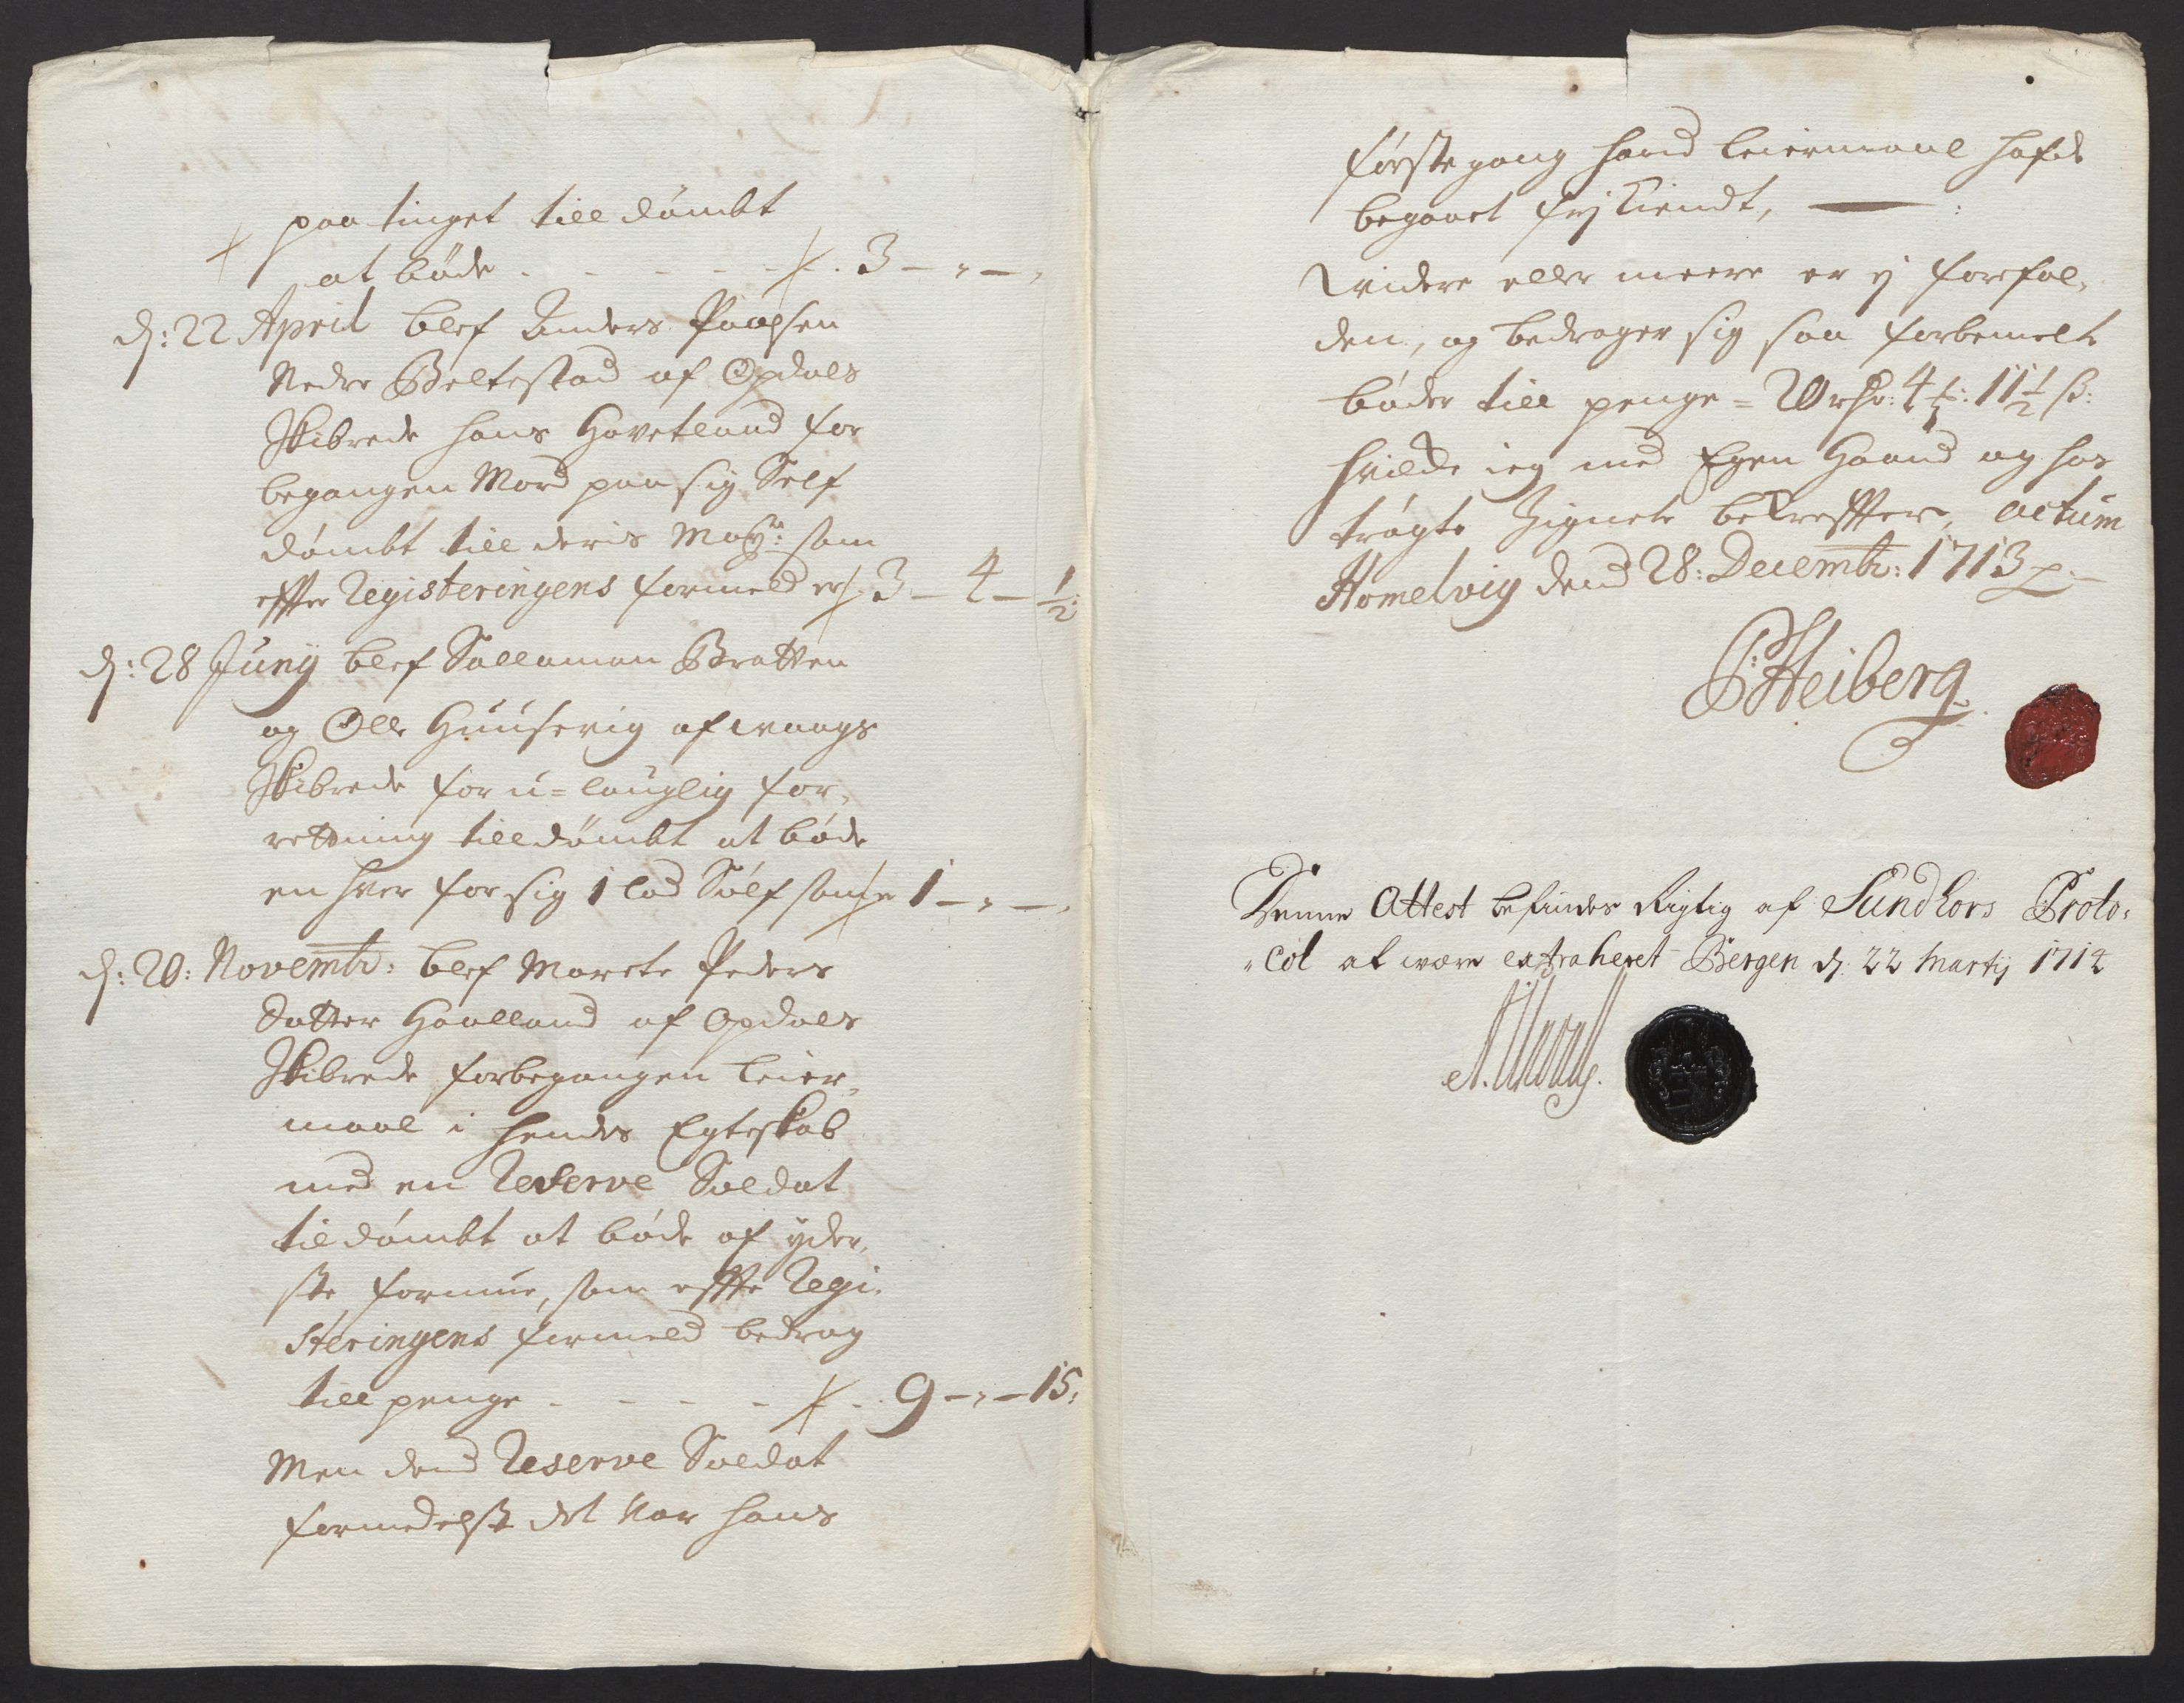 paa tinget till dømbt
at bøde - - - - - - 3 - „ -
d: 22 April blef Anders
Nedre Beltestad af Opdals
Skibrede hans Hovetlaud for
begangen Mord paa sig Self
dømbt till deris May: som
effter Registeringens formeld er 3 - 4 - 1/2
d: 28 Junij blef Sallamon Bratten
og Olle Huusevig af waags
Skibrede for u=lauglig for,
rettning till dømbt at bøde
en hver for sig 1 lod Sølf 1 - „ -
d: 20: Novembr: blef Marete Peders
Datter Haalland af Opdals
Skibrede forbegangen leier,
maal i hendes Egteskab
med en Reserve Soldat
tildømbt at bøde af yder,
ste formue, som effter Regi,
steringens formeld bedrag
till penge - - - - - 9 - „ - 15,
Men dend Reserve Soldat
formedelst det var hans
første gang hand leiermaal hafde
begaaet frj kiendt, :
widere eller meere er ej forfal,
den, og bedrager sig saa forbemelte
bøder till penge = 20 rhr: 4 : 11 1/2 s:
hvilcke ieg med Egen Haand og hos
trøgte Zignete bekreffter, actum
Homelvig dend 28: Decembr: 1713
Heiberg
Denne Attest befindes Rigtig af Sundhors Proto,
„col at were extraheret Bergen d: 22 Martij 1714